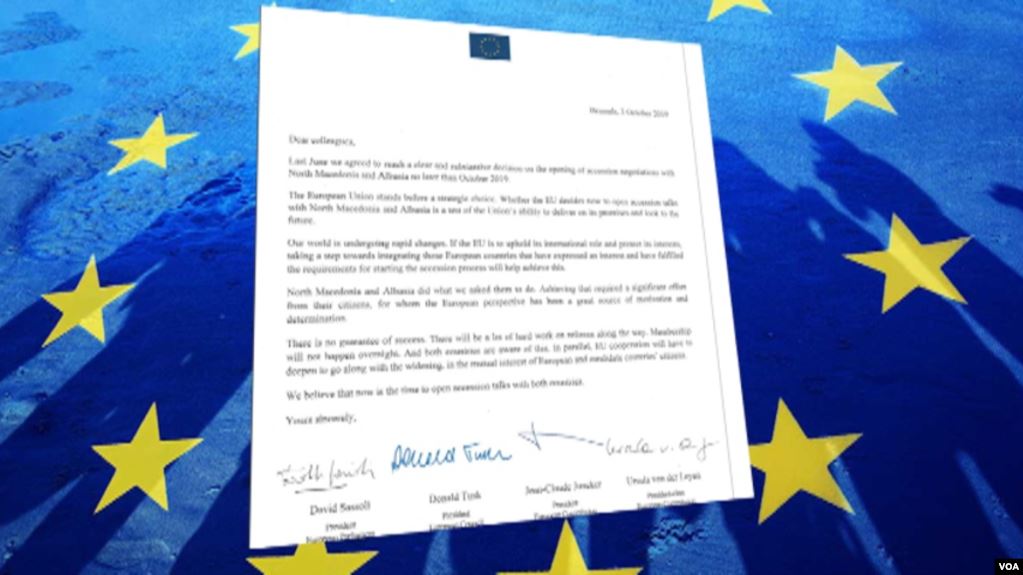 Brussels, 3 October 2019
Dear colleagues,
Last June we agreed to reach a clear and substantive decision on the opening of accession negotiations with
North Macedonia and Albania no later than October 2019.
The European Union stands before a strategic choice. Whether the EU decides now to open accession talks
with North Macedonia and Albania is a test of the Union's ability to deliver on its promises and look to the
future.
Our world is undergoing rapid changes. If the EU is to uphold its international role and protect its interests,
taking a step towards integrating those European countries that have expressed an interest and have fulfilled
the requirements for starting the accession process will help achieve this.
North Macedonia and Albania did what we asked them to do. Achieving that required a significant effort
from their citizens, for whom the European perspective has been a great source of motivation and
determination.
There is no guarantee of success. There will be a lot of hard work on reforms along the way. Membership
will not happen overnight. And both countries are aware of this. In parallel, EU cooperation will have to
deepen to go along with the widening, in the mutual interest of European and candidate countries' citizens.
We believe that now is the time to open accession talks with both countries.
Yours sincerely,
Donald Tusk
David Sassoli Donald Tusk Jean-Claude Juncker Ursula von der Leyen
President President President
European Parliament European Council European Commission European Commission
VOA